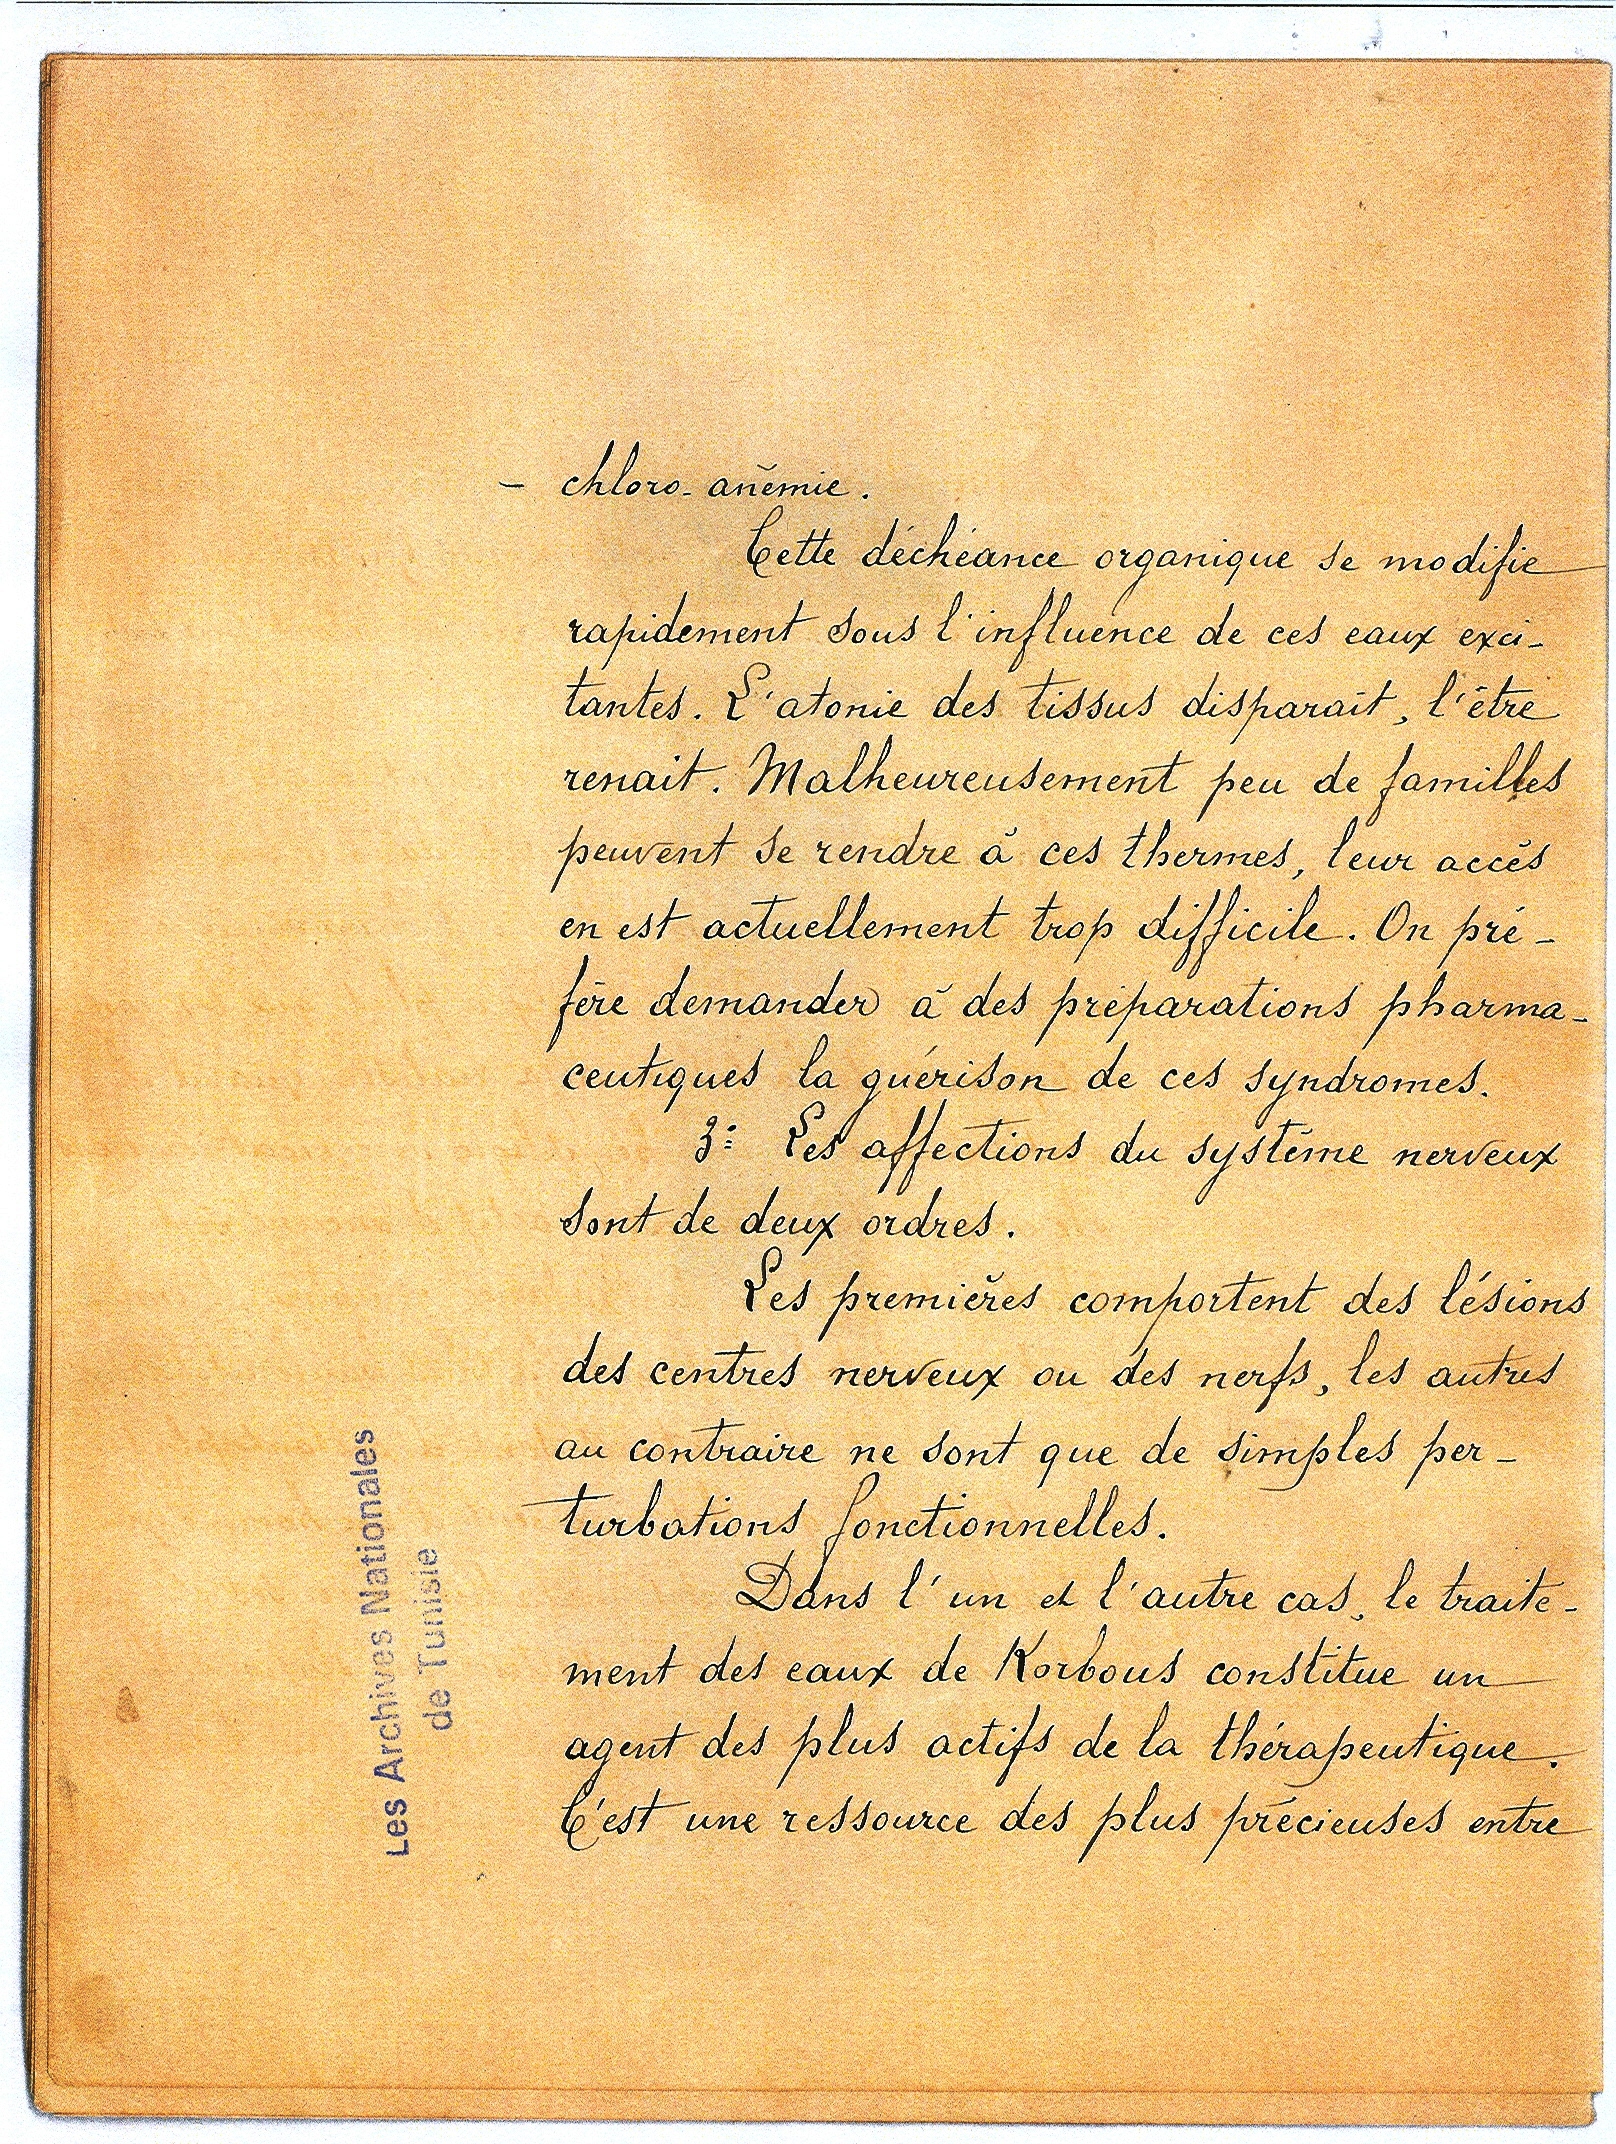 - chloro-anémie.
Cette déchéance organique se modifie
rapidement sous l'influence de ces eaux exci-
tantes. L'atonie des tissus disparait, l'être
renait. Malheureusement peu de familles
peuvent se rendre à ces thermes, leur accès
en est actuellement trop difficile. On pré-
fère demander à des préparations pharma-
ceutiques la guérison de ces syndromes.
3º Les affections du système nerveux
sont de deux ordres.
Les premières comportent des lésions
des centres nerveux ou des nerfs, les autres
au contraire ne sont que de simples per-
turbations fonctionnelles.
Dans l'un et l'autre cas, le traite-
ment des eaux de Korbous constitue un
agent des plus actifs de la thérapeutique.
C'est une ressource des plus précieuses entre
Les Archives Nationales
de Tunisie